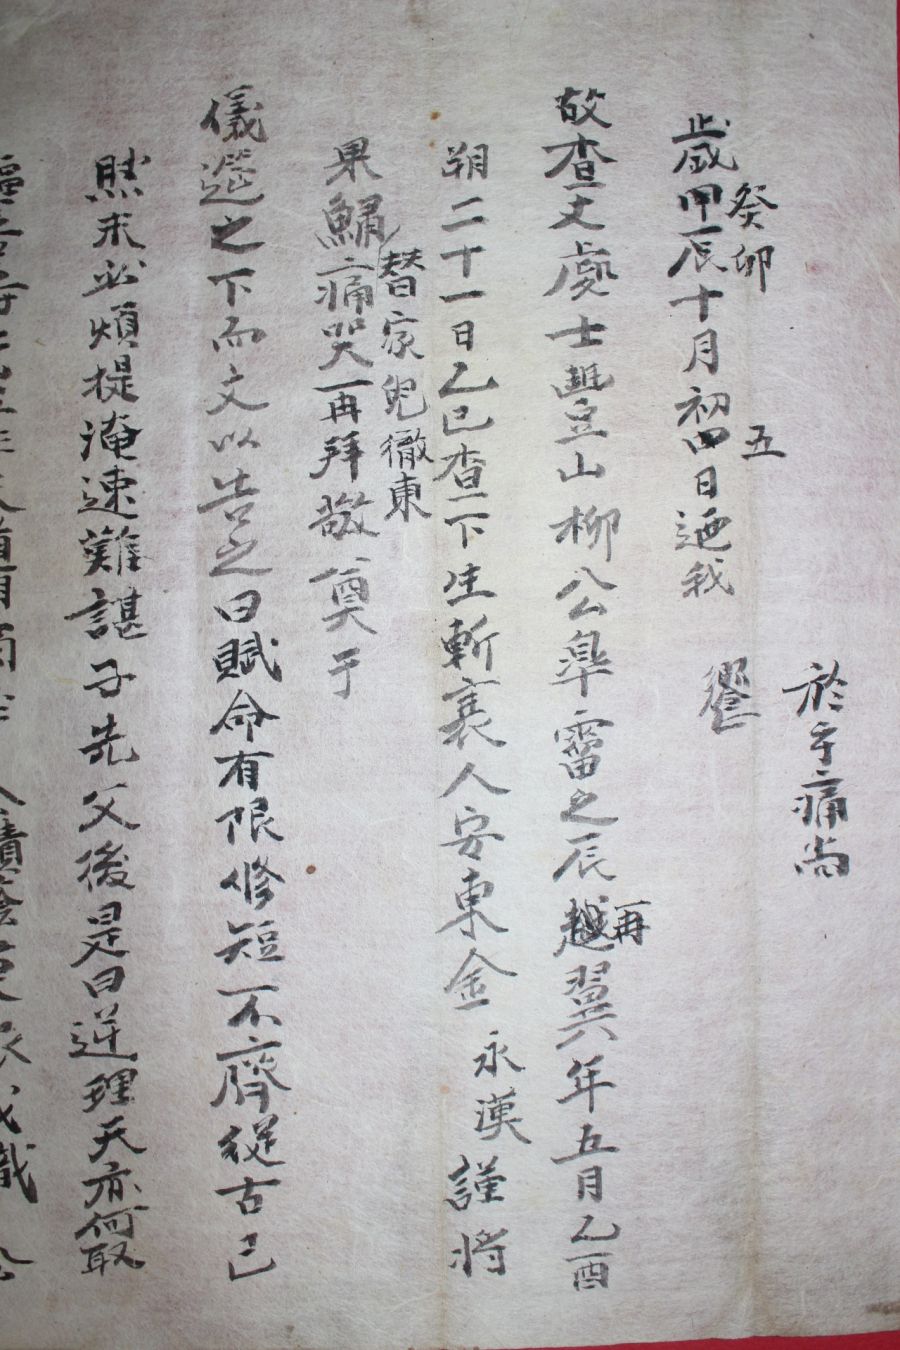 於乎痛尚
饗
癸卯
五
歲甲辰十月初四日迺我
故查丈處士豐山柳公皐審之辰越翼年五月乙酉
再
朔二十一日乙巳查下生斬衰人安東金永漢謹將
替家兒徹東
果鱐痛哭再拜敬奠于
儀筵之下而文以告之曰賦命有限修短不齊從古已
然未必煩提淹速難諶子先父後是曰逆理天亦何取